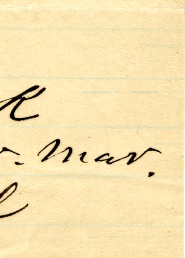 K
r. Mar.
l